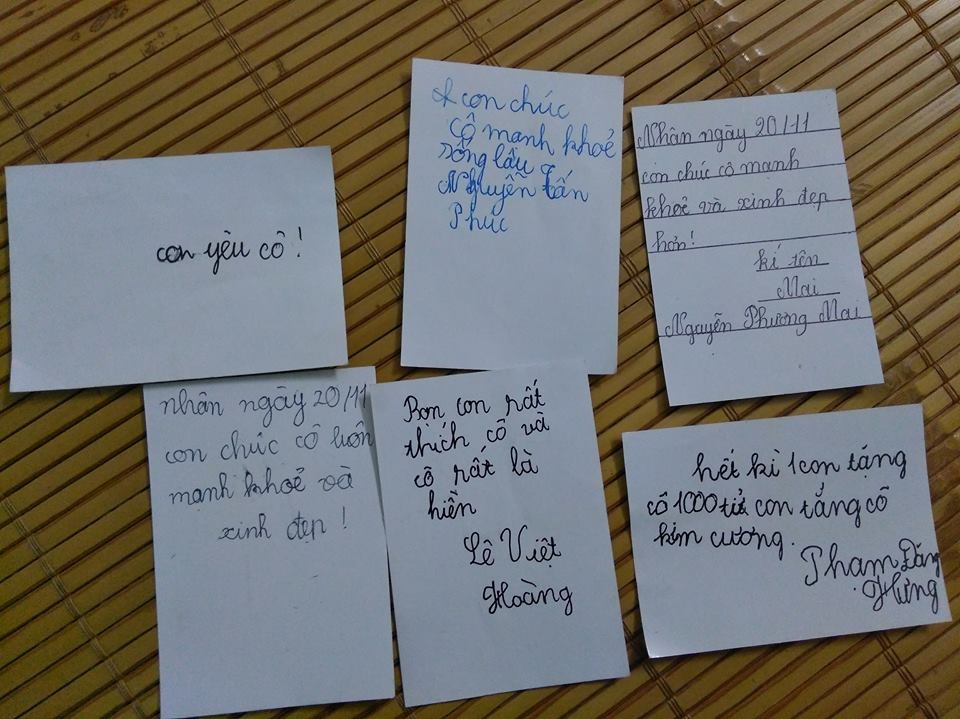 con yêu cô!
con chúc
cô mạnh khoẻ
sống lâu
Nguyễn Tấn
Phúc
Nhân ngày 20/11
con chúc cô mạnh
khoẻ và xinh đẹp
hơn!
kí tên
Mai
Nguyễn Phương Mai
nhân ngày 20/11
con chúc cô luôn
mạnh khoẻ và
xinh đẹp!
Bọn con rất
thích cô và
cô rất là
hiền
Lê Việt
Hoàng
hết kì 1 con tặng
cô 1000 tỉ con tặng cô
kim cương.
Phạm Đăng
Hưng